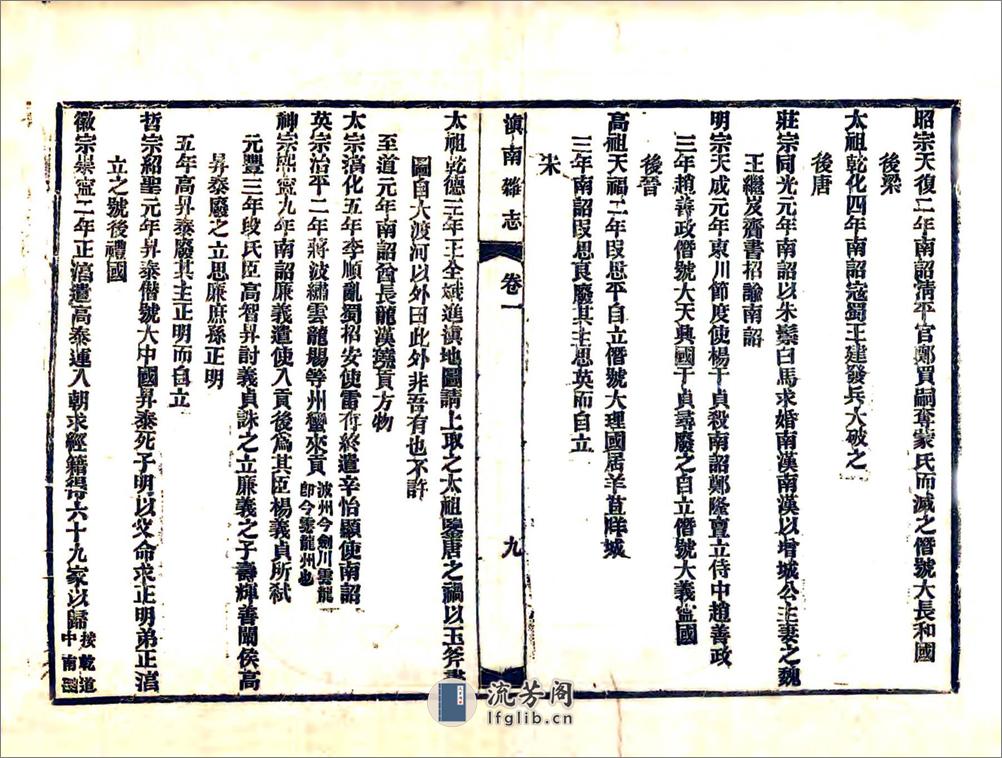 昭宗天復二年南詔淸平官鄭買嗣奪蒙氏而滅之僭號大長和國
後梁
太祖乾化四年南詔寇蜀王建發兵大破之
後唐
莊宗同光元年南詔以朱鬃白馬求婚南漢南漢以增城公主妻之魏
王繼岌齎書招諭南詔
明宗天成元年東川節度使楊干貞殺南詔鄭隆亶立侍中趙善政
三年趙善政僭號大天興國干貞尋廢之自立僭號大義寧國
後晉
高祖天福二年段思平自立僭號大理國居羊苴咩城
三年南詔段思良廢其主思英而自立
宋
滇南雜志
卷一
九
太祖乾德三年王全斌進滇地圖請上取之太祖鑒唐之禍以玉斧畫
圖自大渡河以外曰此外非吾有也不許
至道元年南詔酋長龍漢貢方物
太宗淳化五年李順亂蜀招安使雷有終遣辛怡顯使南詔
英宗治平二年蔣波繡雲龍賜等州蠻來貢
波州今劍川雲龍
卽今雲龍州也
神宗熙寧九年南詔廉義遣使入貢後爲其臣楊義貞所弑
元豐三年段氏臣高智昇討義貞誅之立廉義之子壽輝善闡侯高
昇泰廢之立思廉庶孫正明
五年高昇泰廢其主正明而自立
哲宗紹聖元年昇泰僭號大中國昇泰死子明以父命求正明弟正淳
立之號後禮國
徽宗崇寧二年正淳遣高泰運入朝求經籍得六十九家以歸
按乾道
中南
流芳阁
lfglib.cn